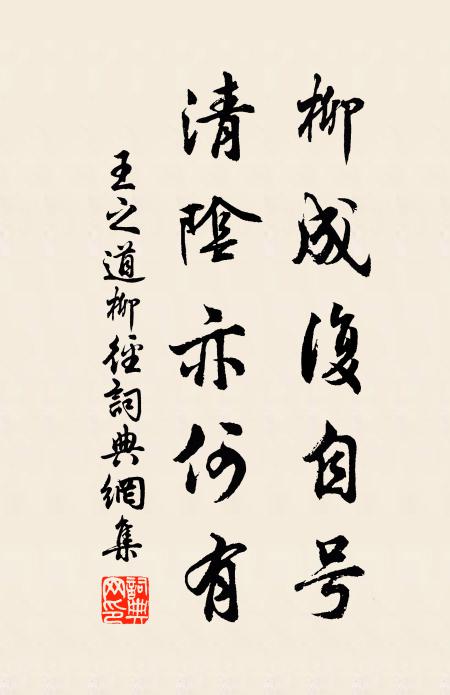 柳成復自号
清陰亦何有
王之道柳徑詞典網集
詞典網印